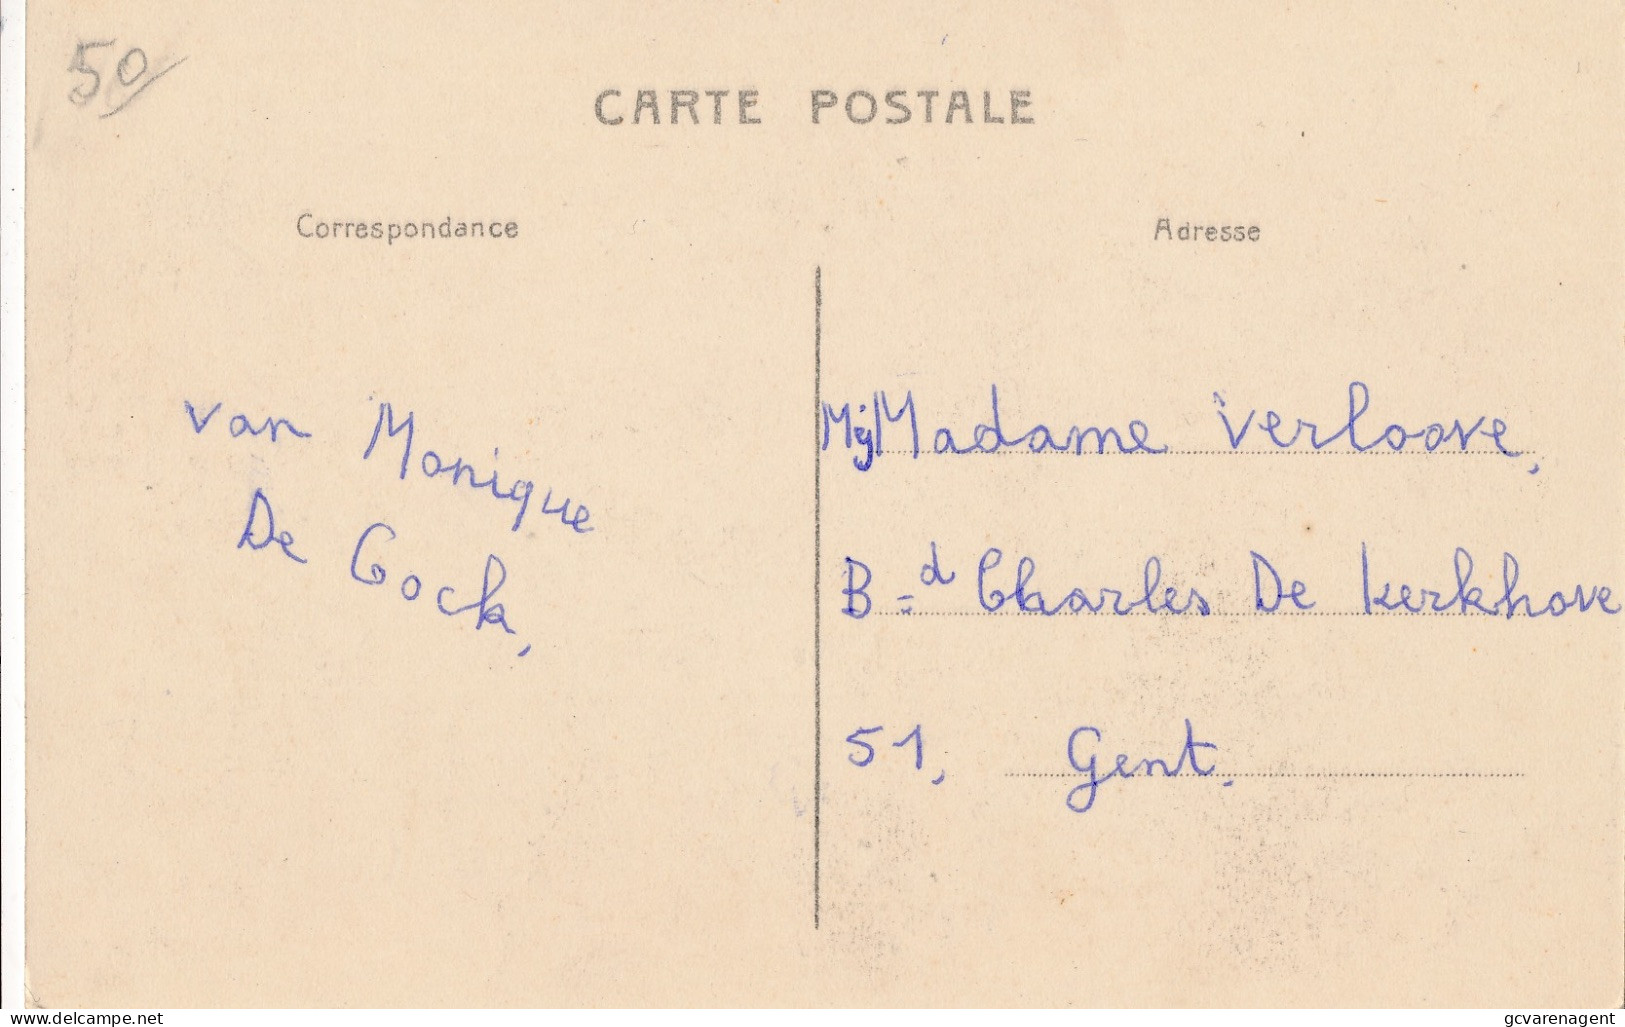 50
CARTE POSTALE
Correspondance
Adresse
van Monique
De Cock,
Mij Madame Verloove,
B-d Charles De Kerkhove
51, Gent.
www.delcampe.com
gcvarenagent